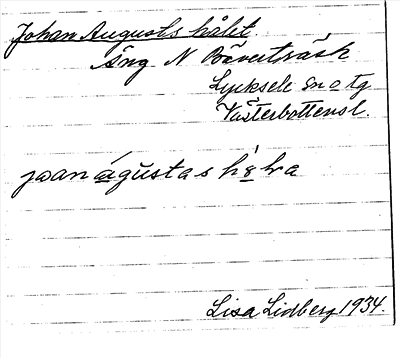 Johan Augusts hålet.
Äng N Bäverträsk
Lycksele sn o tg
Västerbottensl.
joan ágústas hǫlra
Lisa Lidberg 1934.